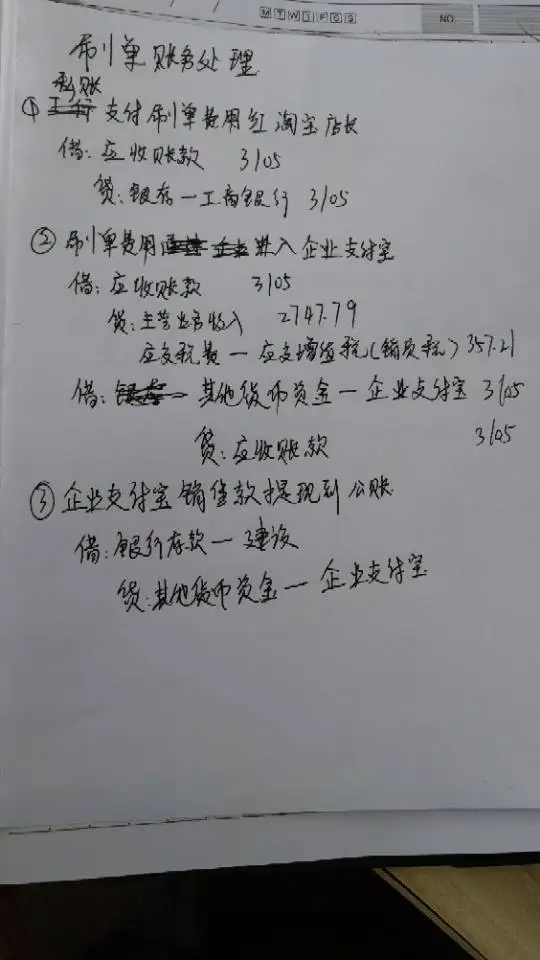 M T W T F S S
NO.
刷单账务处理
私账
① 支付刷单费用红淘宝店长
借: 应收账款 3105
贷: 银存一工商银行 3105
② 刷单费用进入企业支付宝
借: 应收账款 3105
贷: 主营业务收入 2747.79
应交税费一应交增值税(销项税) 357.21
借: 其他货币资金一企业支付宝 3105
贷: 应收账款 3105
③ 企业支付宝销售款提现到公账
借: 银行存款一建设
贷: 其他货币资金一企业支付宝